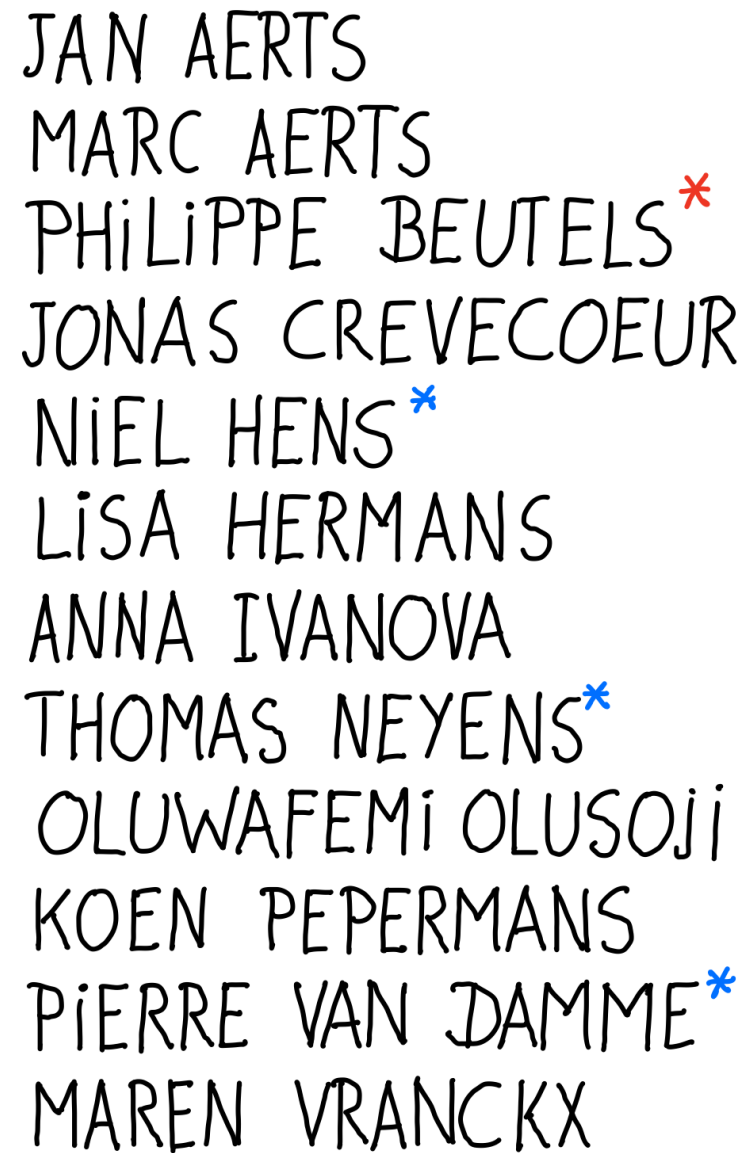 JAN AERTS
MARC AERTS
PHiLiPPE BEUTELS*
JONAS CREVECOEUR
NiEL HENS*
LiSA HERMANS
ANNA IVANOVA
THOMAS NEYENS*
OLUWAFEMi OLUSOji
KOEN PEPERMANS
PiERRE VAN DAMME*
MAREN VRANCKX